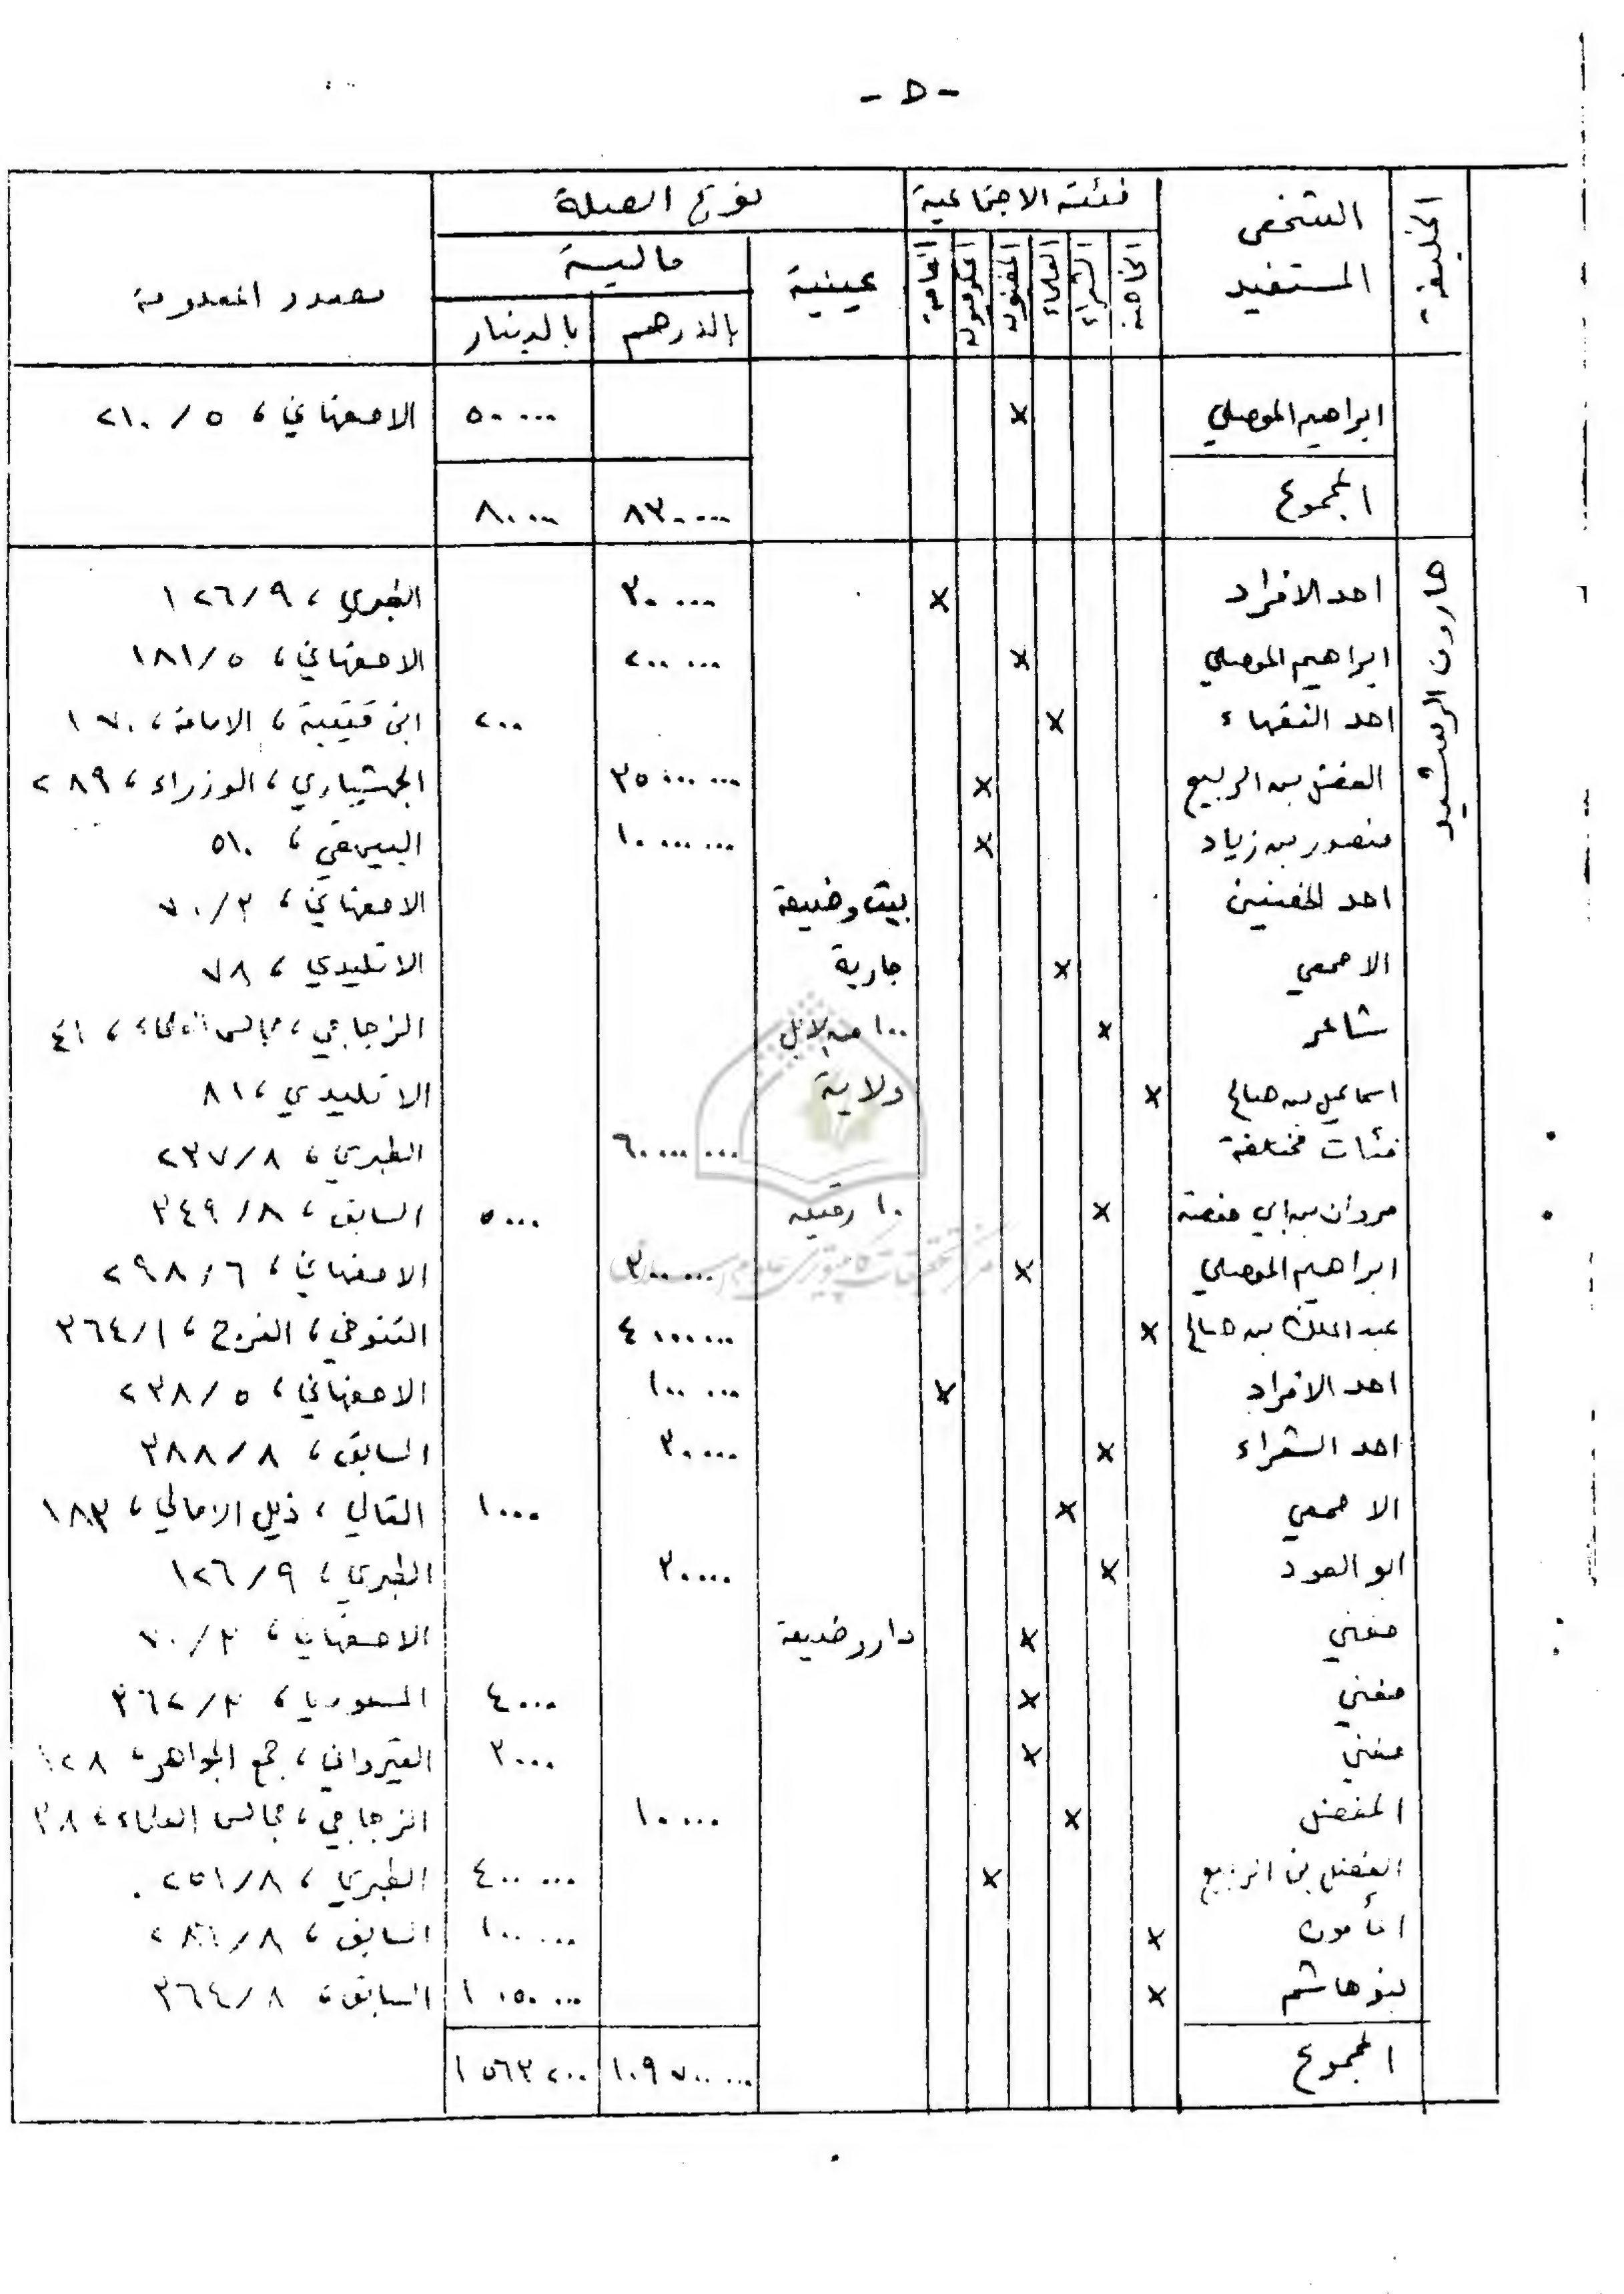 - ٥ -
الخليفة | الشخص المستفيد | فئته الاجتماعية | نوع الصلة | مصدر المعلومة
الخاصة | الشعراء | العلماء | المغنون | الحكوميون | العامة | عينية | مالية
بالدرهم | بالدينار
ابراهيم الموصلي | x | ٥٠٠٠٠ | الاصفهاني ، ٥ / ٢١٠
المجموع | ٨٣٠٠٠٠ | ٨٠٠٠٠
هارون الرشيد
احد الافراد | x | ٣٠٠٠٠ | الطبري ، ٩/ ١٢٦
ابراهيم الموصلي | x | ٢٠٠٠٠٠ | الاصفهاني ، ٥/ ١٨١
احد الفقهاء | x | ٢٠٠ | ابن قتيبة ، الامامة ، ١٧٠
الفضل بن الربيع | x | ٣٥٠٠٠٠٠٠ | الجهشياري ، الوزراء ، ٢٨٩
منصور بن زياد | x | ١٠٠٠٠٠٠٠ | البيهقي ، ٥١٠
احد المغنين | بيت وضيعة | الاصفهاني ، ٣/ ٧٠
الاصمعي | x | جارية | الاتليدي ، ٧٨
شاعر | x | ١٠٠ من الابل | الزجاجي ، مجالس العلماء ، ٤١
اسماعيل بن صالح | x | ولاية | الاتليدي ، ٨١
فئات مختلفة | ٦٠٠٠٠٠٠٠ | الطبري ، ٨/ ٢٣٧
مروان بن ابي حفصة | x | ١٠ رقيق | ٥٠٠٠ | السابق ، ٨/ ٣٤٩
ابراهيم الموصلي | x | ٣٠٠٠٠٠ | الاصفهاني ، ٦/ ٢٩٨
عبد الملك بن صالح | x | ٤٠٠٠٠٠٠ | التنوخي ، الفرج ، ١/ ٣٦٤
احد الافراد | x | ١٠٠٠٠٠ | الاصفهاني ، ٥/ ٢٣٨
احد الشعراء | x | ٣٠٠٠٠ | السابق ، ٨/ ٣٨٨
الاصمعي | x | ١٠٠٠ | القالي ، ذيل الامالي ، ١٨٣
ابو العود | x | ٣٠٠٠٠ | الطبري ، ٩/ ١٢٦
مغني | x | دار وضيعة | الاصفهاني ، ٣/ ٧٠
مغني | x | ٤٠٠٠ | المسعودي ، ٣/ ٣٦٢
مغني | x | ٣٠٠٠ | القيرواني ، جمع الجواهر ، ١٢٨
المفضل | x | ١٠٠٠٠ | الزجاجي ، مجالس العلماء ، ٣٨
الفضل بن الربيع | x | ٤٠٠٠٠٠ | الطبري ، ٨/ ٢٥١
المأمون | x | ١٠٠٠٠٠ | السابق ، ٨/
بنو هاشم | x | ١٠٥٠٠٠٠ | السابق ، ٨/ ٣٦٤
المجموع | ١٠٩٧٠٠٠٠٠ | ١٥٦٣٢٠٠